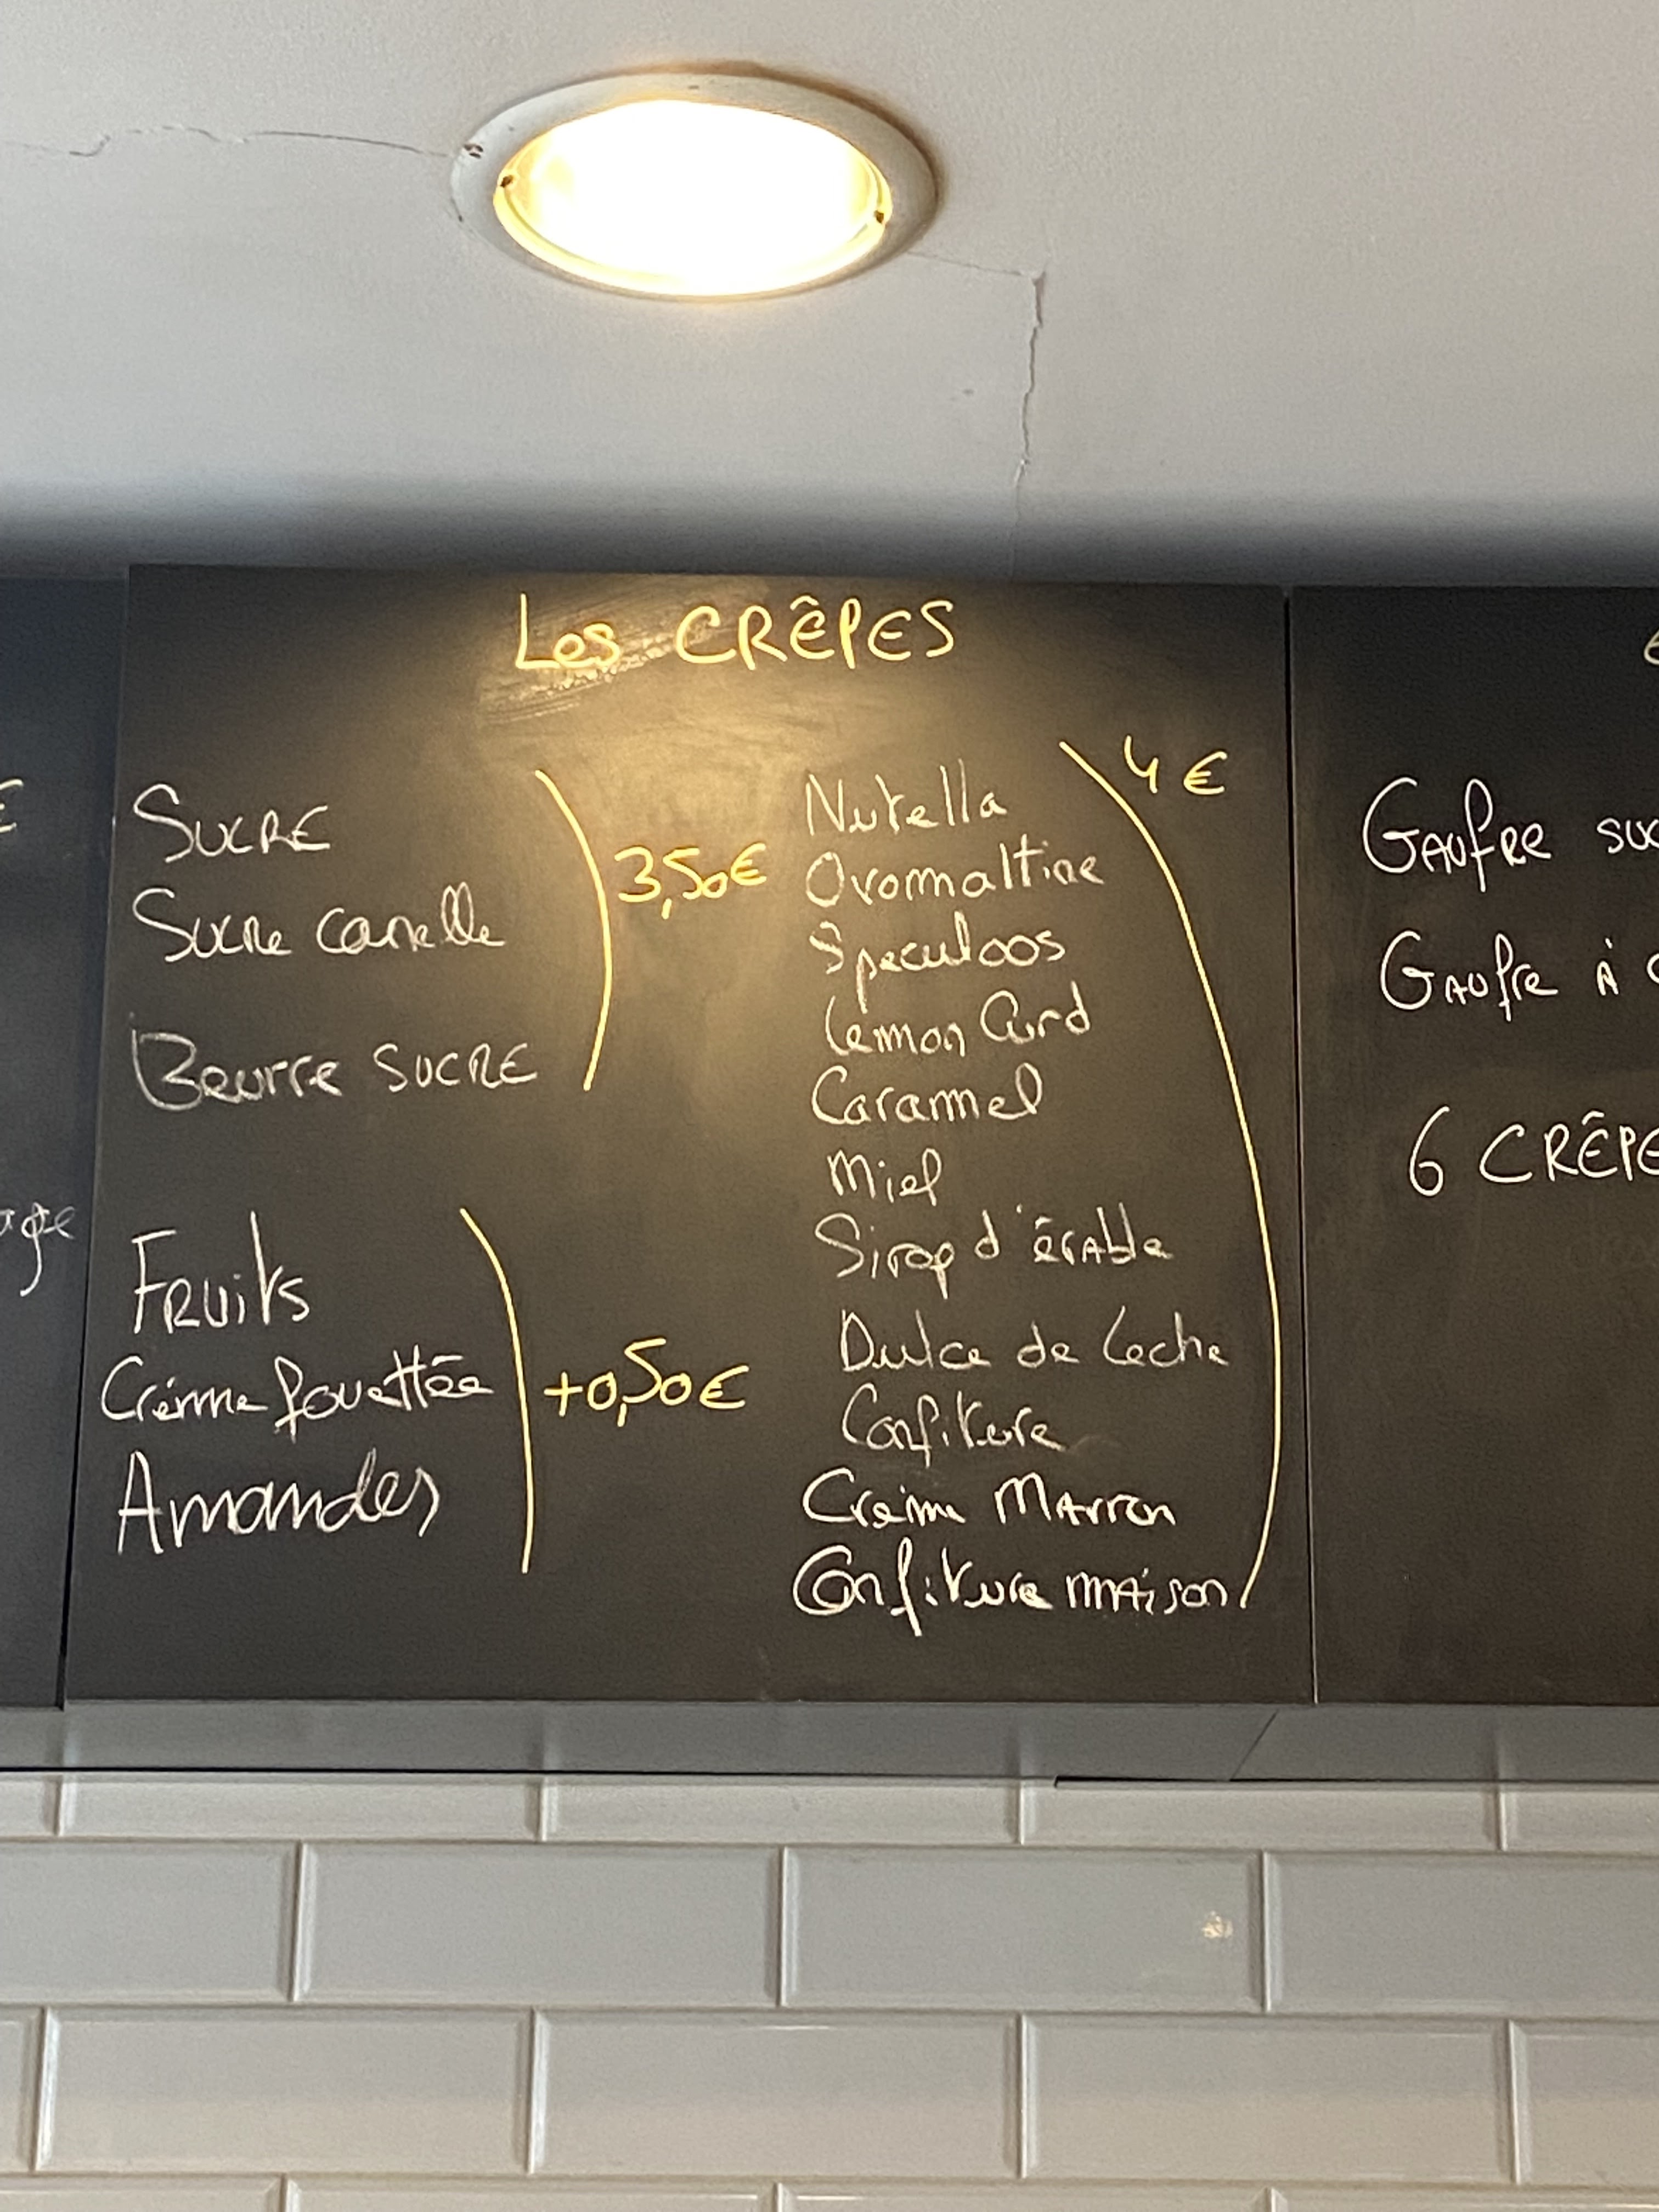 Les CRÊPES
SUCRE
Sucre canelle
Beurre SUCRE
3,50€
Fruits
Crème fouettée
Amandes
+0,50€
Nutella
Ovomaltine
Speculoos
Lemon Curd
Caramel
Miel
Sirop d'érable
Dulce de Leche
Confiture
Crème Marron
Confiture maison
4€
Gaufre suc
Gaufre à
6 CRÊPE